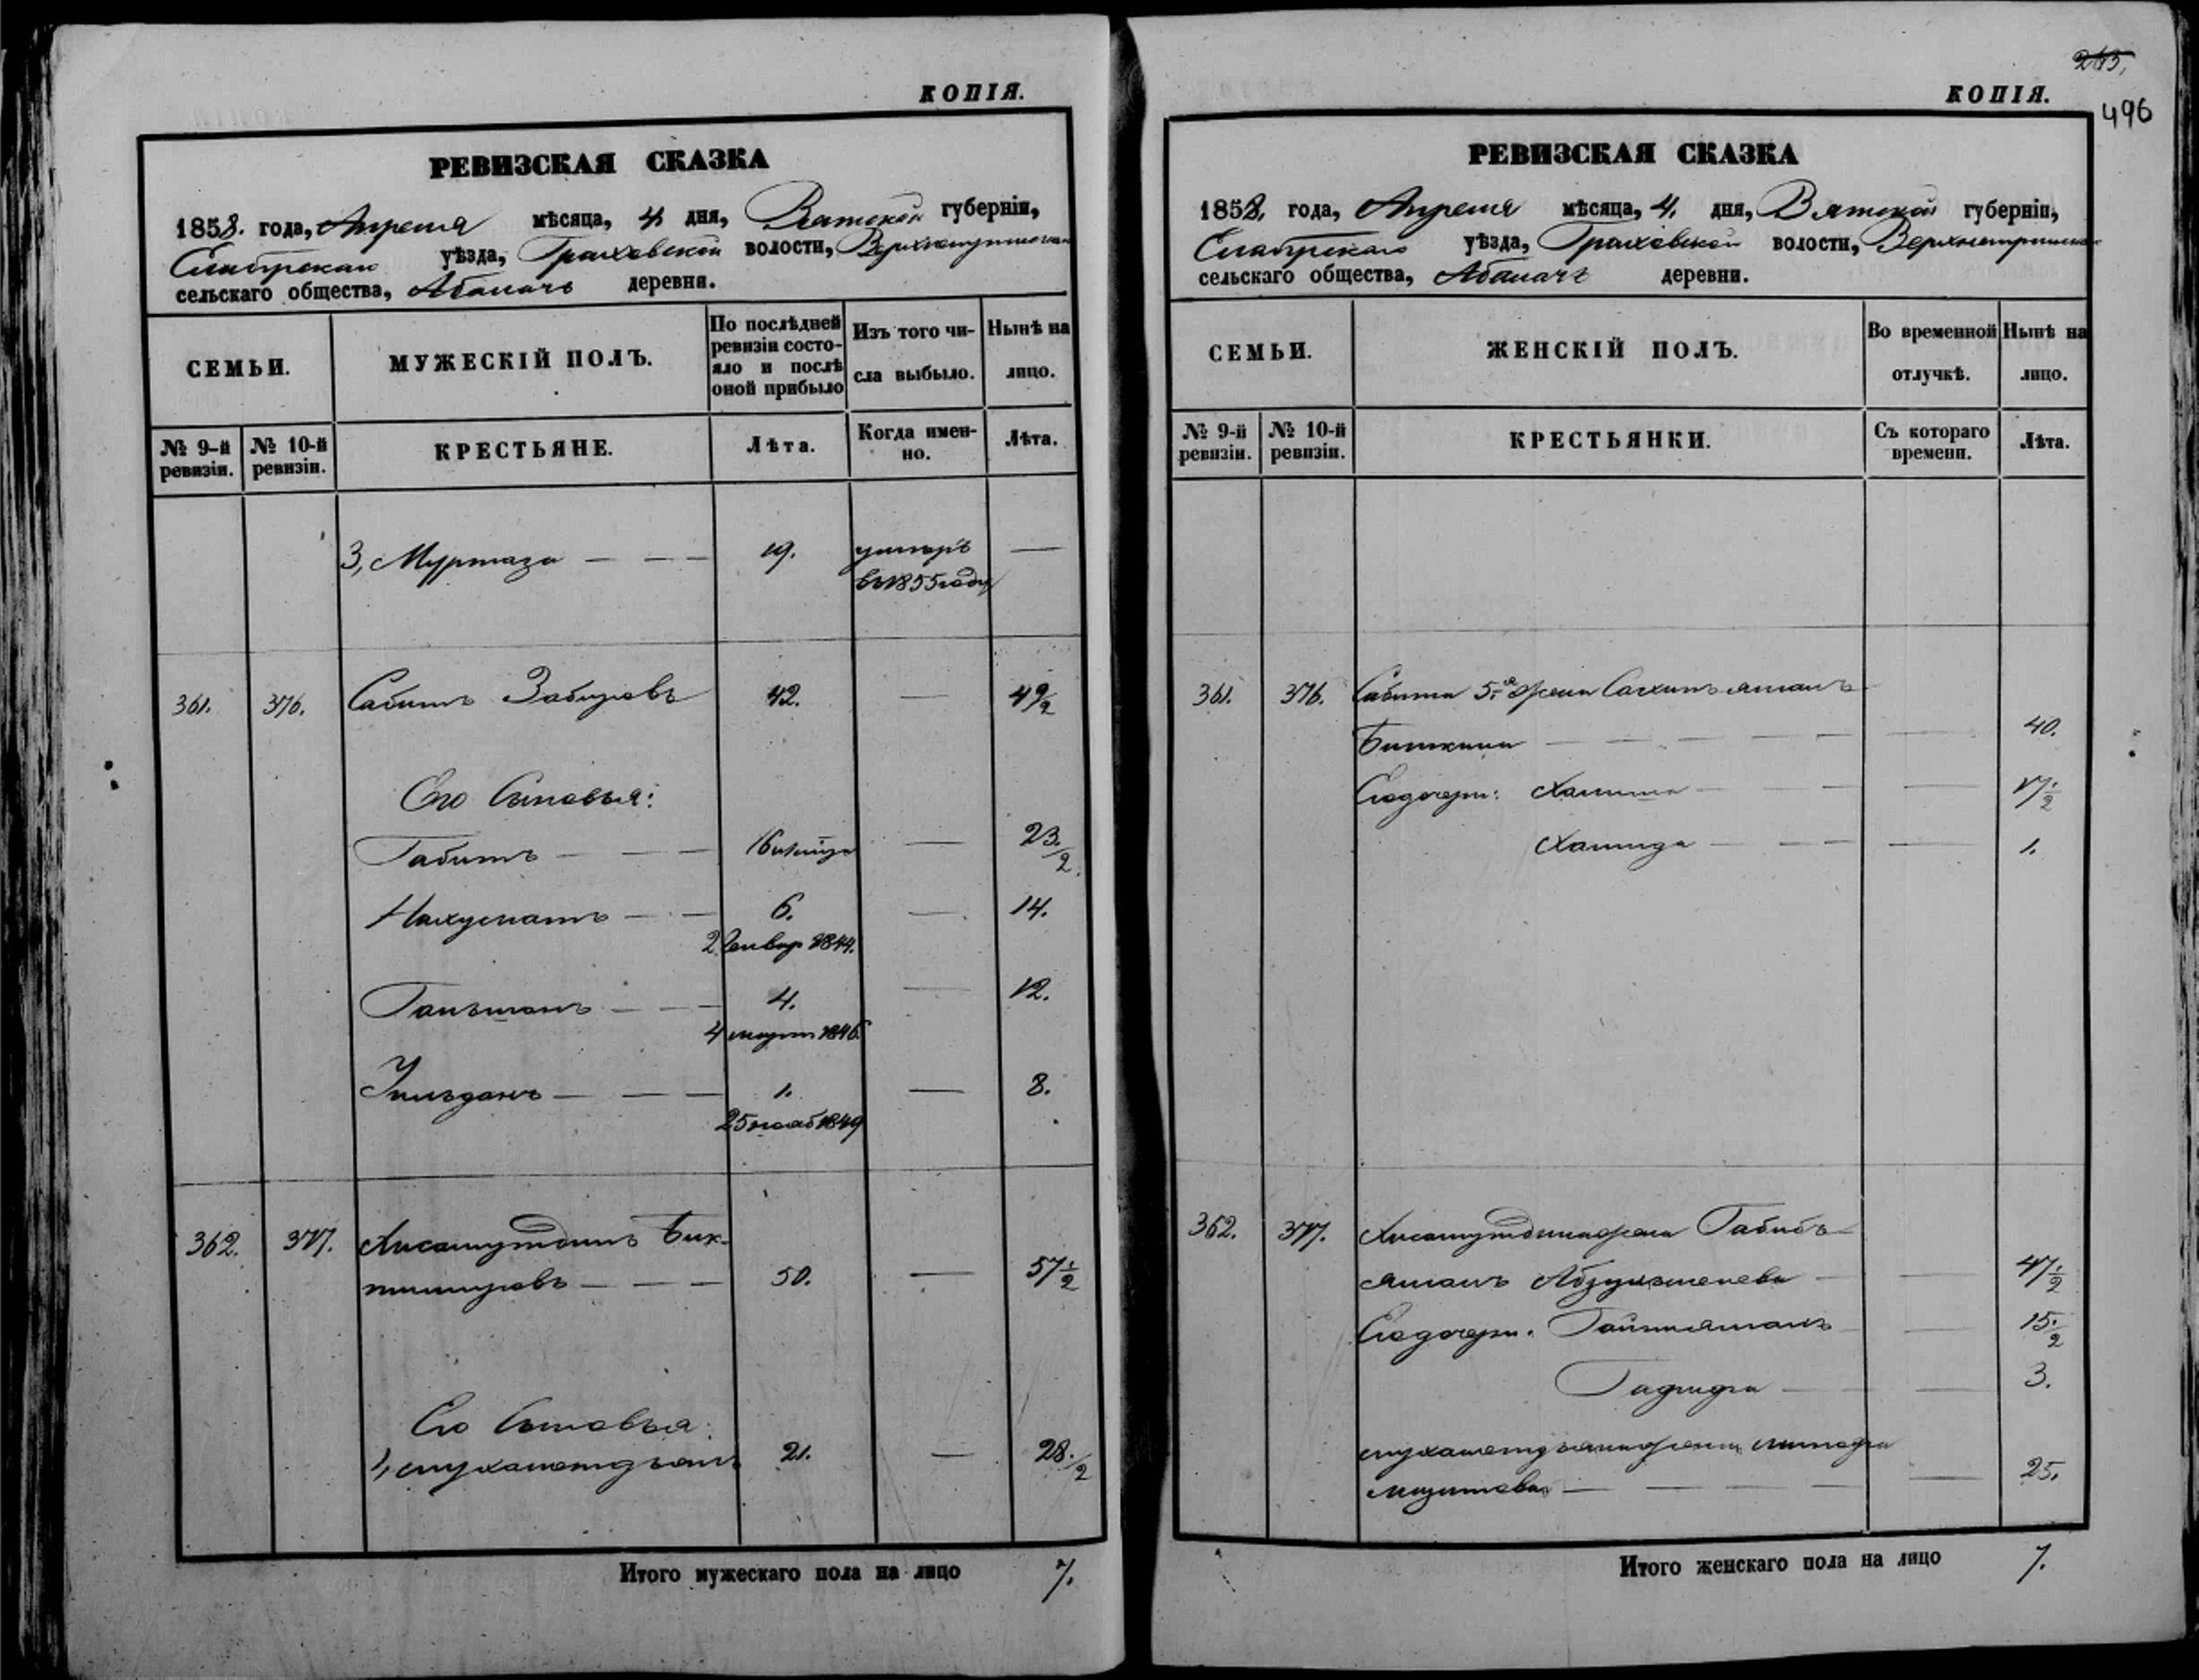 КОПІЯ.
РЕВИЗСКАЯ СКАЗКА
1858. года, Апреля мѣсяца, 4 дня, Вятской губерніи,
Елабужскаго уѣзда, Граховской волости,
сельскаго общества, деревни.
СЕМЬИ.
МУЖЕСКІЙ ПОЛЪ.
По послѣдней ревизіи состояло и послѣ оной прибыло
Изъ того числа выбыло.
Нынѣ на лицо.
№ 9-й ревизіи.
№ 10-й ревизіи.
КРЕСТЬЯНЕ.
Лѣта.
Когда именно.
Лѣта.
3, Муртаза — — — 19. умеръ —
въ 1855 году
361. 376. Сабитъ 42. — 49 1/2
Его Сыновья:
Габитъ — — — 16 — 23 1/2
6. — 14.
2 Генвар 1844.
4. — 12.
4 март 1846
1. — 8.
25 нояб 1849
362. 377. Хисамутдинъ Бик-
тимировъ — — — 50. — 57 1/2
Его Сыновья:
1, Мухаметдзянъ 21. — 28 1/2
Итого мужескаго пола на лицо 7.
243,
496
КОПІЯ.
РЕВИЗСКАЯ СКАЗКА
1858, года, Апреля мѣсяца, 4. дня, Вятской губерніи,
Елабужскаго уѣзда, Граховской волости,
сельскаго общества, деревни.
СЕМЬИ.
ЖЕНСКІЙ ПОЛЪ.
Во временной отлучкѣ.
Нынѣ на лицо.
№ 9-й ревизіи.
№ 10-й ревизіи.
КРЕСТЬЯНКИ.
Съ котораго времени.
Лѣта.
361. 376. Сабита жена
— — — — — — 40.
Его дочери: — — — — 17 1/2
Хамида — — — — 1.
362. 377. Хисамутдина жена Габибъ-
— — 47 1/2
Его дочери: — 15 1/2
— — 3.
Мухаметдзяна жена
— — — — — 25.
Итого женскаго пола на лицо 7.